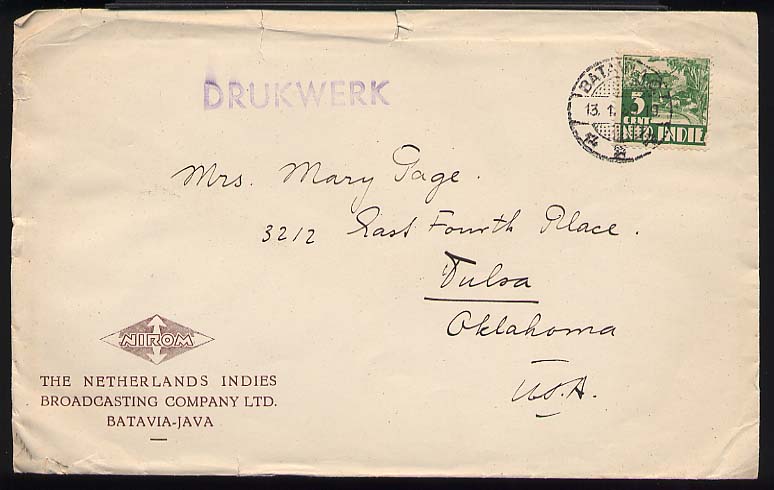 DRUKWERK
BATAVIA
13. 1.
5
CENT
NED. INDIE
Mrs. Mary Page.
3212 East Fourth Place.
Tulsa
Oklahoma
U.S.A.
NIROM
THE NETHERLANDS INDIES
BROADCASTING COMPANY LTD.
BATAVIA-JAVA